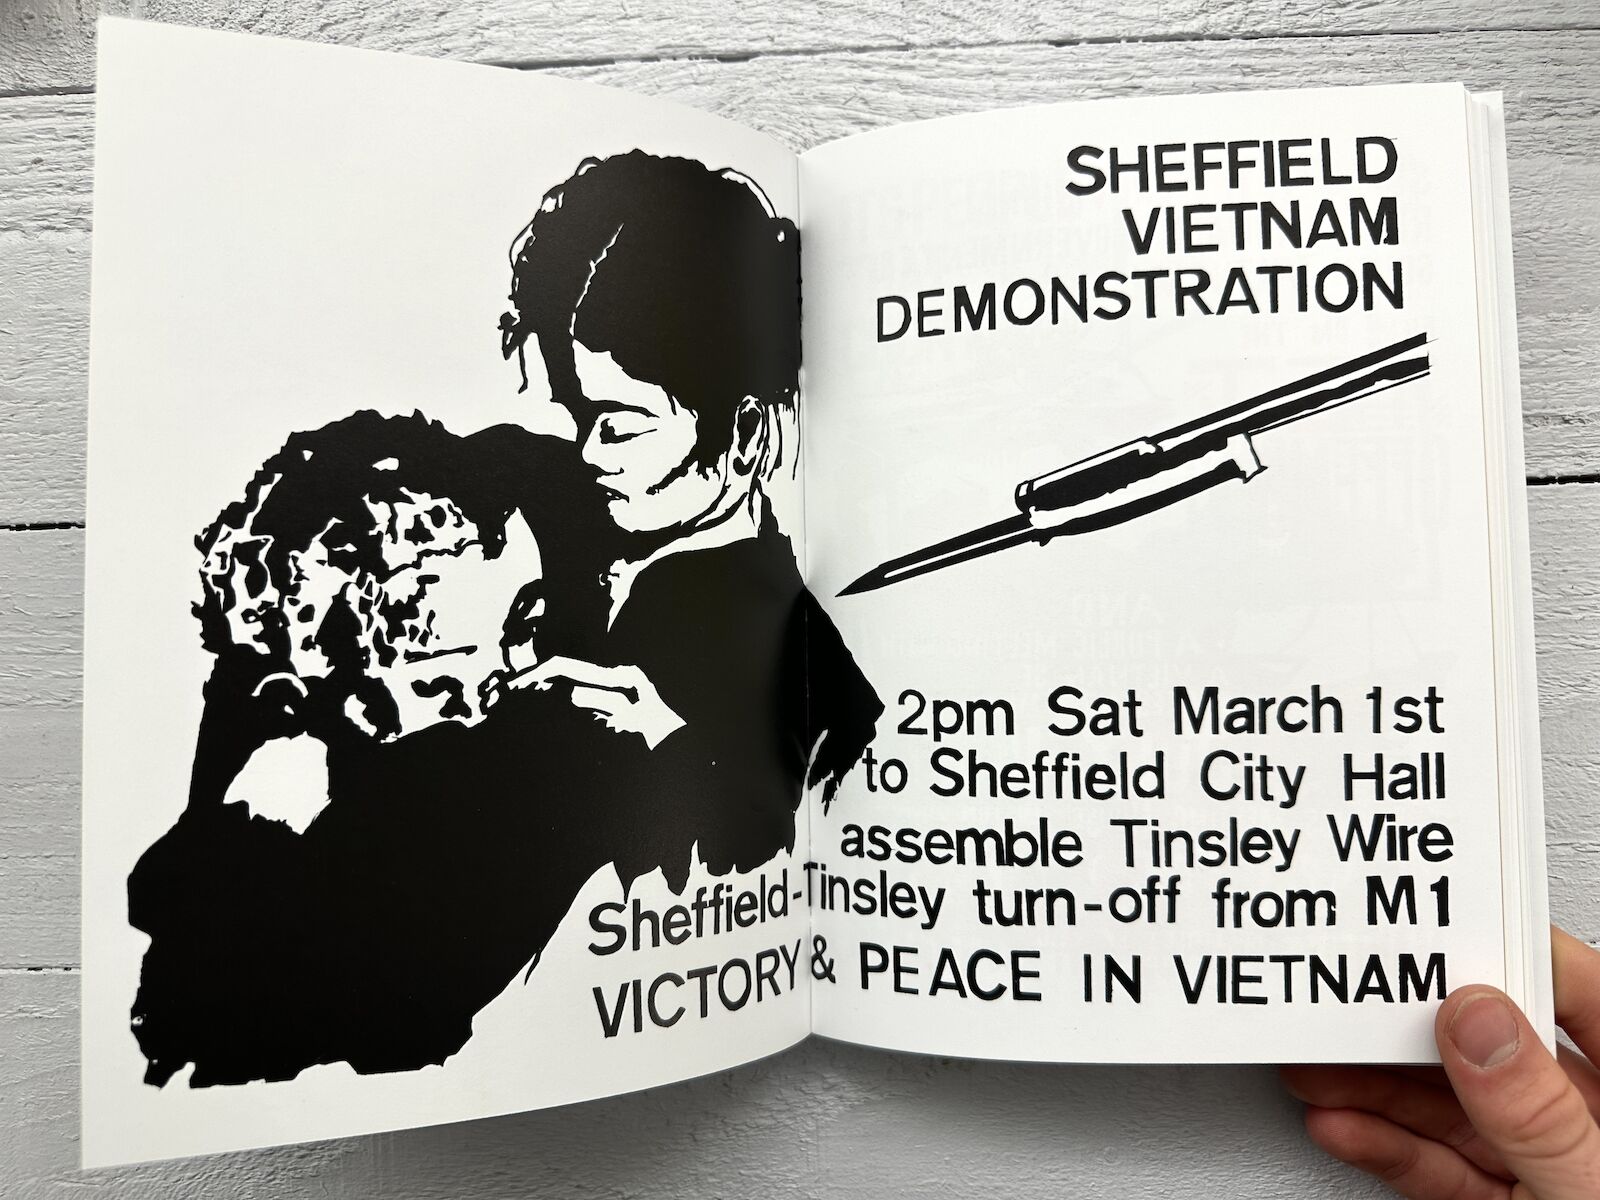 SHEFFIELD
VIETNAM
DEMONSTRATION
2pm Sat March 1st
to Sheffield City Hall
assemble Tinsley Wire
Sheffield-Tinsley turn-off from M1
VICTORY & PEACE IN VIETNAM